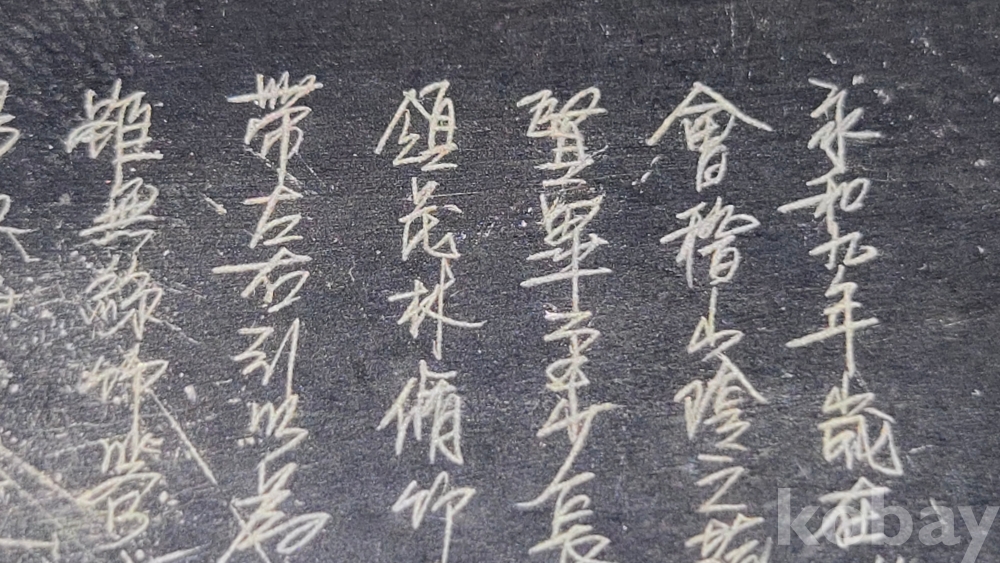 永和九年歲在
會稽山陰之蘭
賢畢至少長
領茂林脩竹
帶左右引以為
雖無絲竹管
kobay